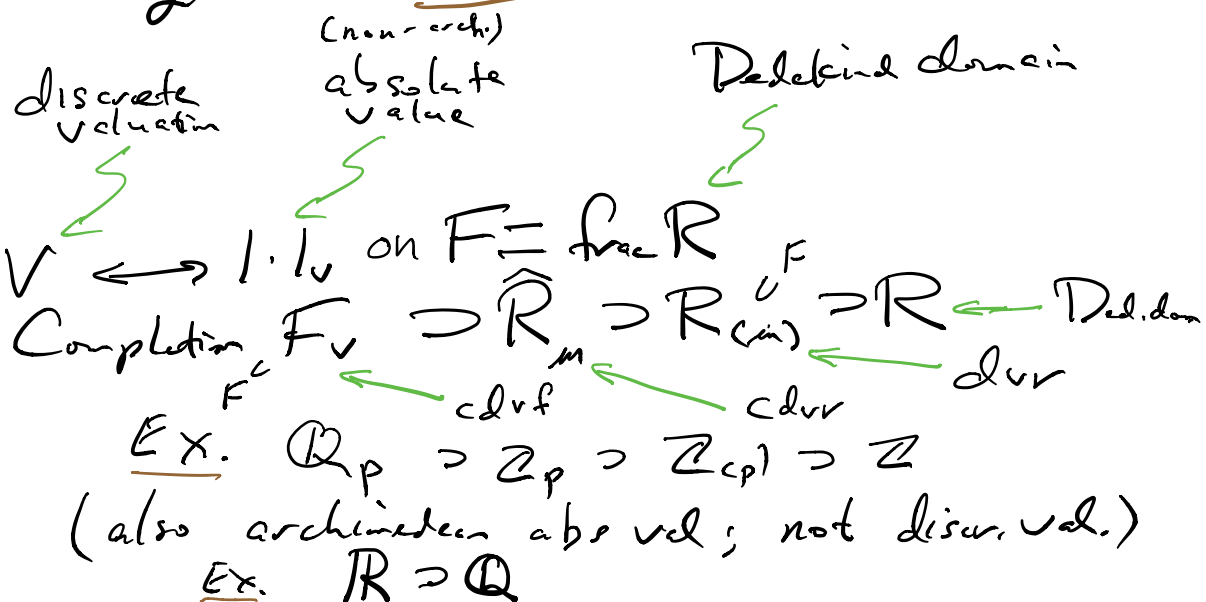 (non-arch.)
discrete valuation
absolute value
Dedekind domain
V ↔ |·|_v on F ≡ frac R
F
Completion F_v ⊃ R̂_m ⊃ R_(m) ⊃ R ← Ded. dom
F
cdvf
cdvr
dvr
Ex. ℚ_p ⊃ ℤ_p ⊃ ℤ_(p) ⊃ ℤ
(also archimedean abs val; not discr. val.)
Ex. ℝ ⊃ ℚ